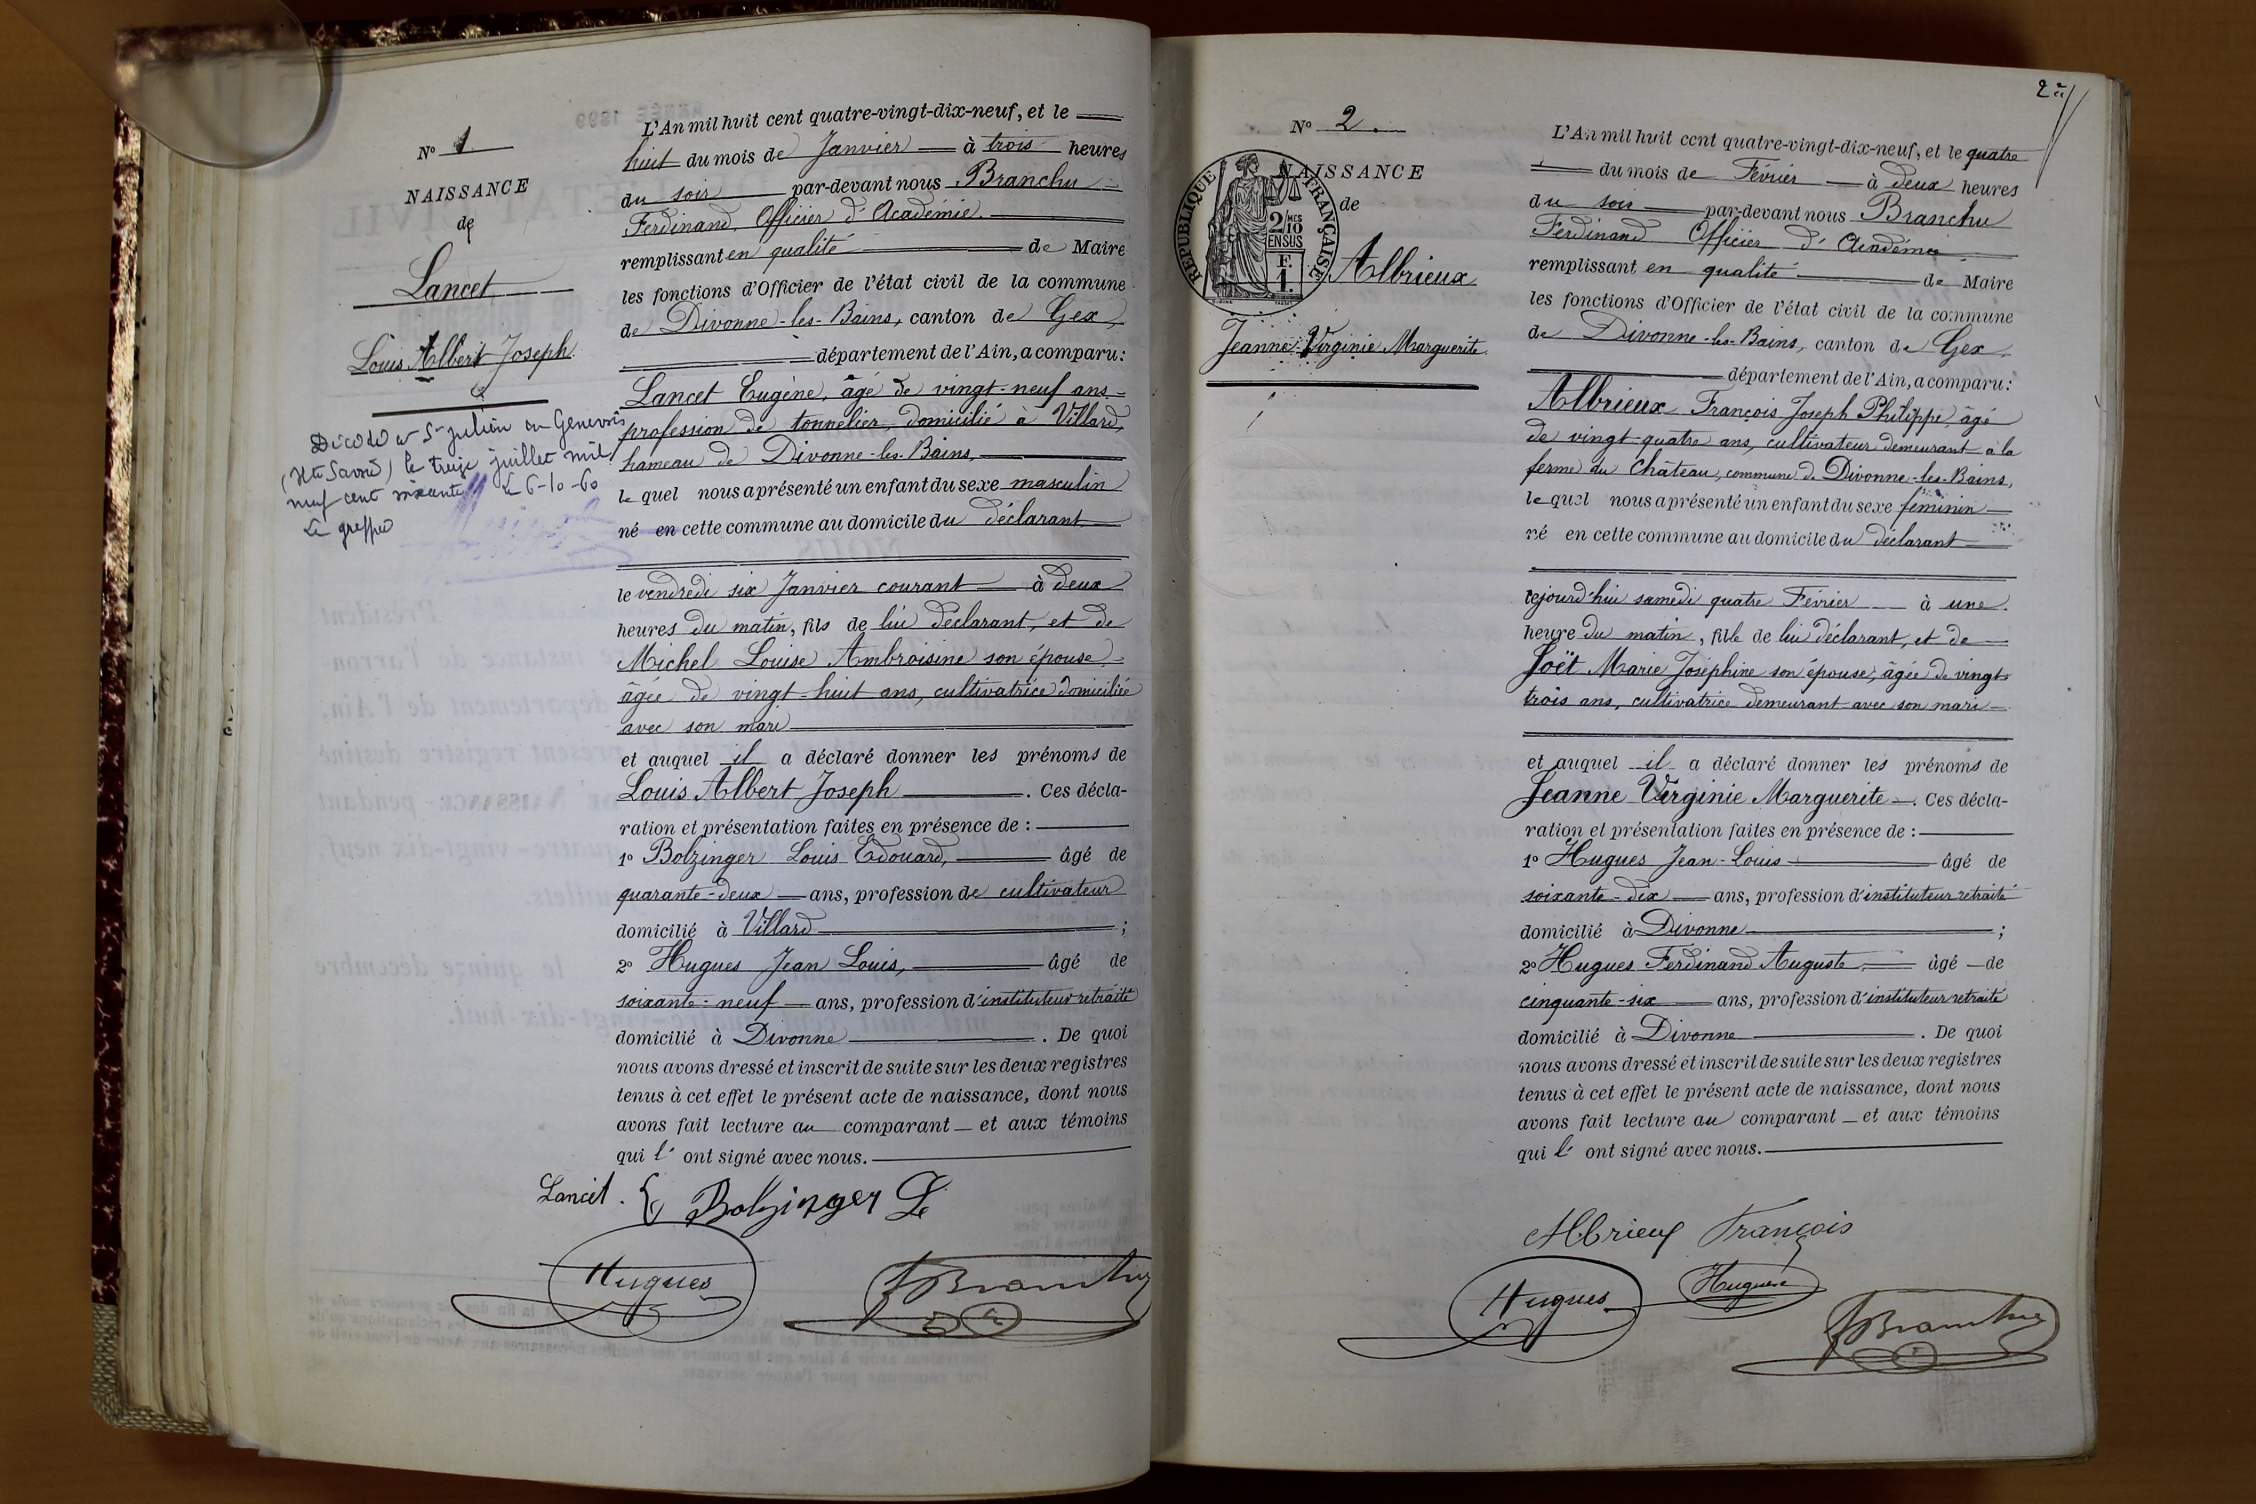 N° 1
NAISSANCE
de
Lancet
Louis Albert Joseph
Décédé à St Julien en Genevois
(Hte Savoie) le treize juillet mil
neuf cent soixante Le 6-10-60
Le greffier
L'An mil huit cent quatre-vingt-dix-neuf, et le
huit du mois de Janvier à trois heures
du soir par-devant nous Branchu
Ferdinand, Officier d'Académie
remplissant en qualité de Maire
les fonctions d'Officier de l'état civil de la commune
de Divonne-les-Bains, canton de Gex,
département de l'Ain, a comparu:
Lancet Eugène, âgé de vingt-neuf ans
profession de tonnelier, domicilié à Villard,
hameau de Divonne-les-Bains,
lequel nous a présenté un enfant du sexe masculin
né en cette commune au domicile du déclarant
le vendredi six Janvier courant à deux
heures du matin, fils de lui déclarant, et de
Michel Louise Ambroisine son épouse
âgée de vingt-huit ans, cultivatrice domiciliée
avec son mari
et auquel il a déclaré donner les prénoms de
Louis Albert Joseph. Ces décla-
ration et présentation faites en présence de :
1° Bolzinger Louis Edouard, âgé de
quarante-deux ans, profession de cultivateur
domicilié à Villard ;
2° Hugues Jean Louis, âgé de
soixante-neuf ans, profession d'instituteur retraité
domicilié à Divonne. De quoi
nous avons dressé et inscrit de suite sur les deux registres
tenus à cet effet le présent acte de naissance, dont nous
avons fait lecture au comparant et aux témoins
qui l' ont signé avec nous.
Lancet. Bolzinger L
Hugues Branchu
2
N° 2.
NAISSANCE
de
REPUBLIQUE FRANÇAISE
2/10 MES
EN SUS
F.
1.
Albrieux
Jeanne Virginie Marguerite
L'An mil huit cent quatre-vingt-dix-neuf, et le quatre
du mois de Février à deux heures
du soir par-devant nous Branchu
Ferdinand Officier d'Académie
remplissant en qualité de Maire
les fonctions d'Officier de l'état civil de la commune
de Divonne-les-Bains, canton de Gex,
département de l'Ain, a comparu:
Albrieux François Joseph Philippe, âgé
de vingt-quatre ans, cultivateur demeurant à la
ferme du Château, commune de Divonne-les-Bains,
lequel nous a présenté un enfant du sexe féminin
né en cette commune au domicile du déclarant
cejourd'hui samedi quatre Février à une
heure du matin, fille de lui déclarant, et de
Joët Marie Joséphine son épouse, âgée de vingt-
trois ans, cultivatrice demeurant avec son mari
et auquel il a déclaré donner les prénoms de
Jeanne Virginie Marguerite. Ces décla-
ration et présentation faites en présence de :
1° Hugues Jean-Louis âgé de
soixante-dix ans, profession d'instituteur retraité
domicilié à Divonne ;
2° Hugues Ferdinand Auguste âgé de
cinquante-six ans, profession d'instituteur retraité
domicilié à Divonne. De quoi
nous avons dressé et inscrit de suite sur les deux registres
tenus à cet effet le présent acte de naissance, dont nous
avons fait lecture au comparant et aux témoins
qui l' ont signé avec nous.
Albrieux François
Hugues Hugues
Branchu